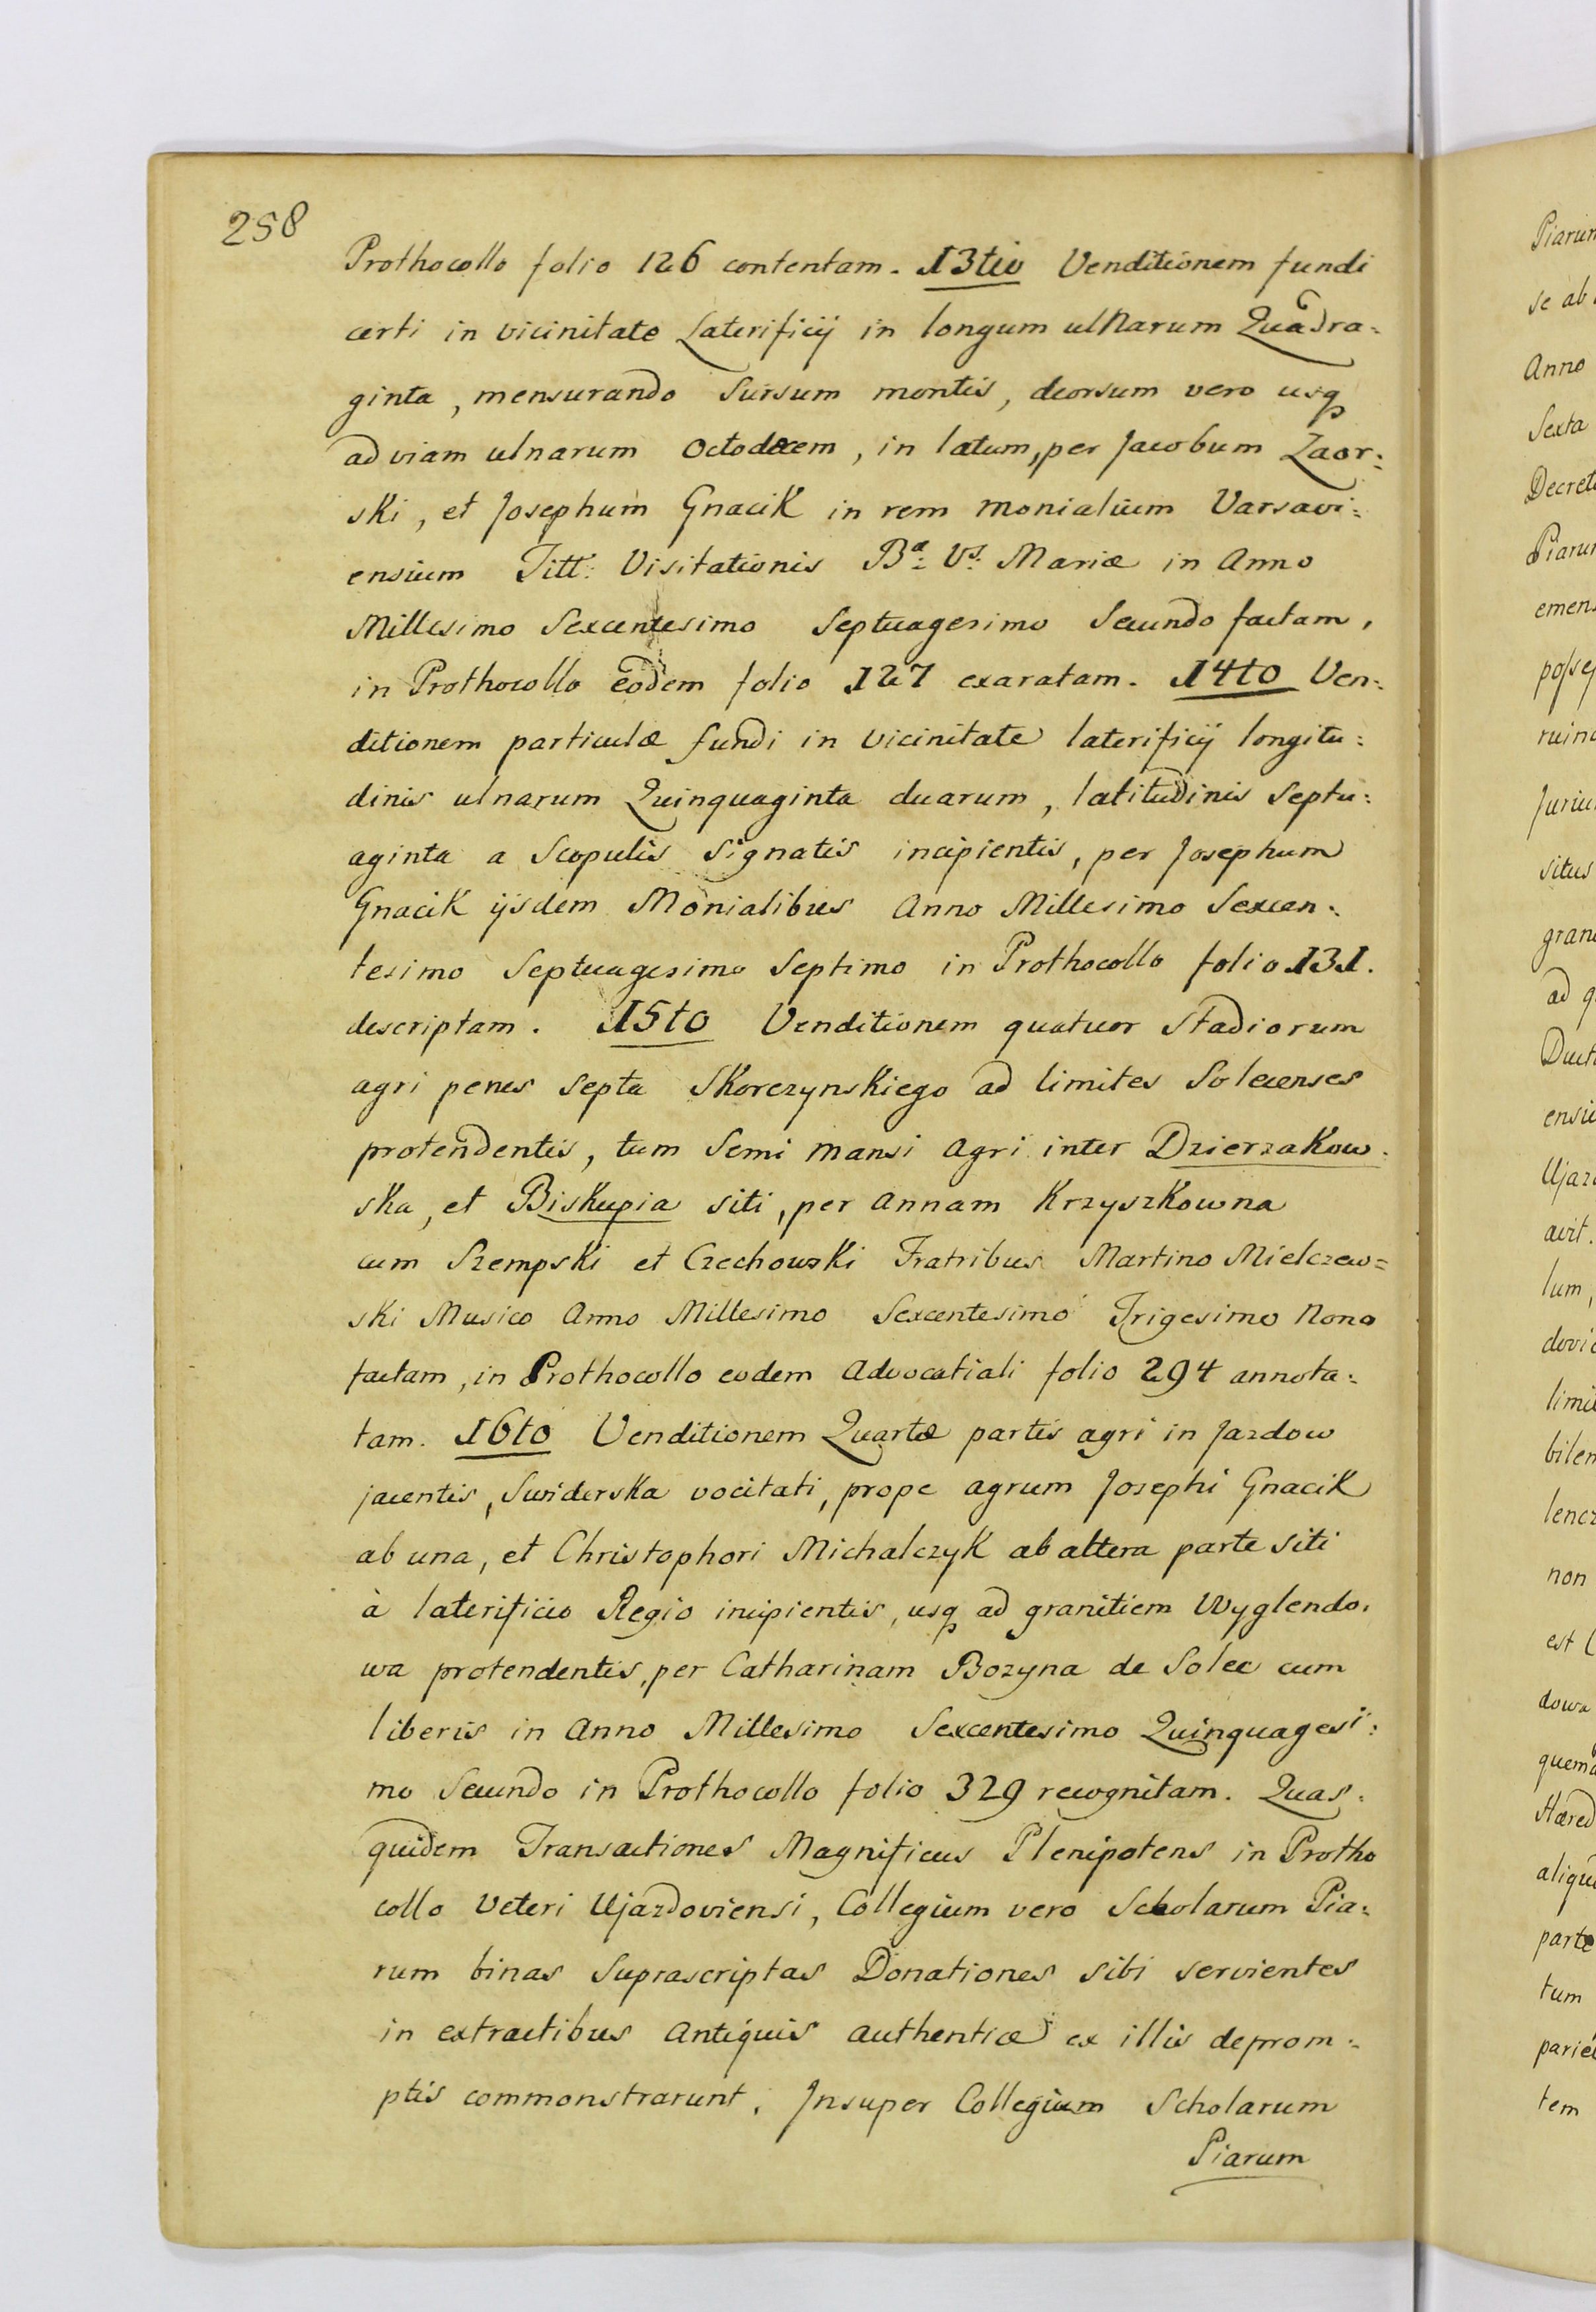 258
Prothocollo folio 126 contentam. 13tio Venditionem fundi
certi in vicinitate Laterificij in longum ulnarum Quadra:
ginta, mensurando sursum montis, deorsum vero usq
ad viam ulnarum Octodecem, in latum, per Jacobum Zaor:
ski, et Josephum Gnacik in rem monialium Varsavi:
ensium Titt: Visitationis Bæ: Vs: Mariæ in Anno
Millesimo Sexcentesimo Septuagesimo Secundo factam,
in Prothocollo eodem folio 127 exaratam. 14to Ven:
ditionem particulæ fundi in vicinitate laterificij longitu:
dinis ulnarum Quinquaginta duarum, latitudinis Septu:
aginta a Scopulis Signatis incipientis, per Josephum
Gnacik ijsdem Monialibus Anno Millesimo Sexcen:
tesimo Septuagesimo Septimo in Prothocollo folio 131.
descriptam. 15to Venditionem quatuor Stadiorum
agri penes Septa Skorczynskiego ad limites Solecenses
protendentis, tum Semi mansi Agri inter Dzierzakow:
ska, et Biskupia siti, per Annam Krzyszkowna
cum Szempski et Czechowski Fratribus Martino Mielczew=
ski Musico Anno Millesimo Sexcentesimo Trigesimo Nono
factam, in Prothocollo eodem Advocatiali folio 294 annota:
tam. 16to Venditionem Quartæ partis agri in Jazdow
jacentis, Swiderska vocitati, prope agrum Josephi Gnacik
ab una, et Christophori Michalczyk ab altera parte siti
à laterificio Regio incipientis, usq ad granitiem Wyglendo.
wa protendentis, per Catharinam Bozyna de Solec cum
liberis in Anno Millesimo Sexcentesimo Quinquagesi:
mo Secundo in Prothocollo folio 329 recognitam. Quas:
quidem Transactiones Magnificus Plenipotens in Protho
collo Veteri Ujazdoviensi, Collegium vero Scholarum Pia:
rum binas Suprascriptas Donationes sibi servientes
in extractibus Antiquis authenticæ ex illis deprom:
ptis commonstrarunt. Insuper Collegium Scholarum
Piarum